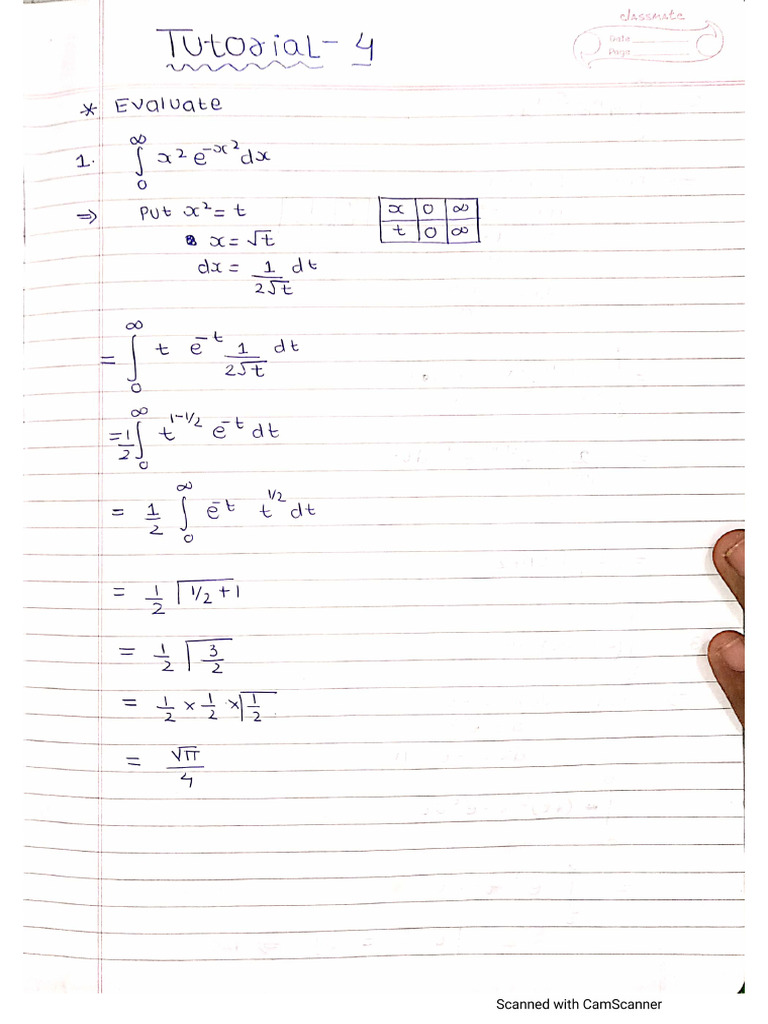 classmate
Date
Page
Tutorial - 4
* Evaluate
1. ∫₀^∞ x² e^(-x²) dx
⇒ Put x² = t
x = √t
dx = 1/(2√t) dt
x 0 ∞
t 0 ∞
= ∫₀^∞ t e^(-t) 1/(2√t) dt
= 1/2 ∫₀^∞ t^(1-1/2) e^(-t) dt
= 1/2 ∫₀^∞ e^(-t) t^(1/2) dt
= 1/2 Γ(1/2 + 1)
= 1/2 Γ(3/2)
= 1/2 × 1/2 × Γ(1/2)
= √π/4
Scanned with CamScanner